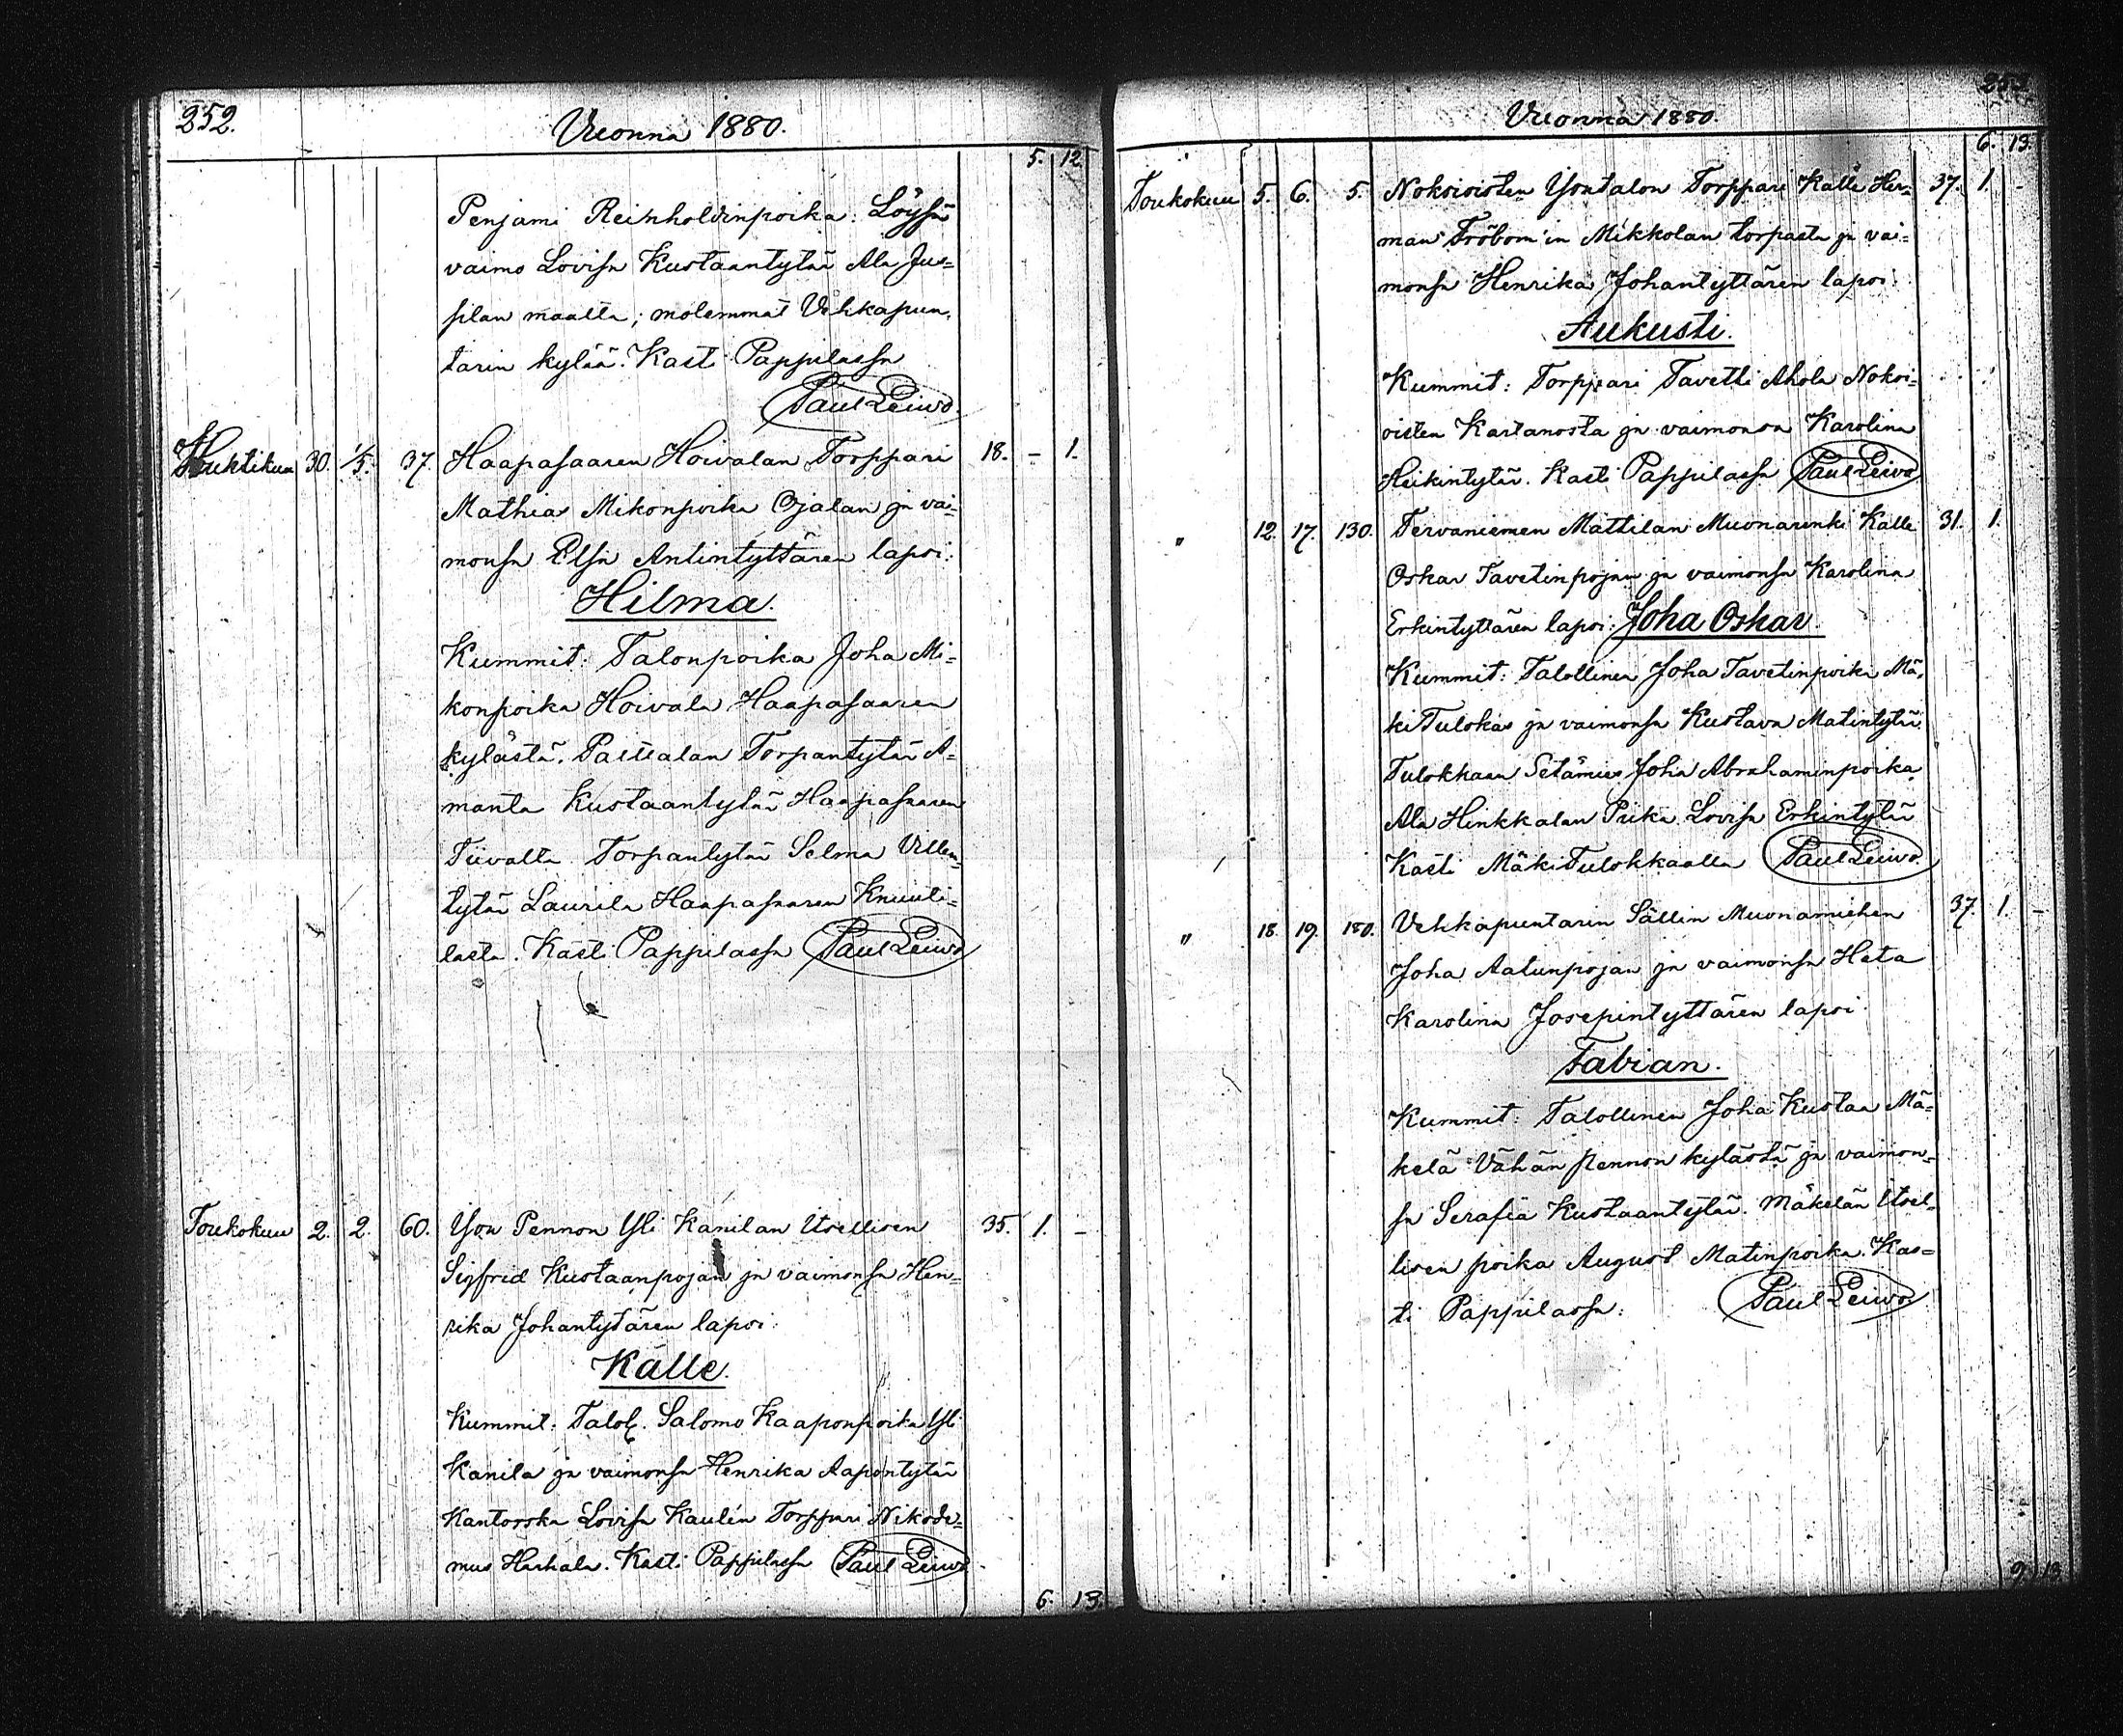 252.
Vuonna 1880.
5. 12.
Penjami Reinholdinpoika Löysä
vaimo Lovisa Kustaantytär Ala Jus=
silan maalta; molemmat Vehkapun=
tarin kylää. Kasti Pappilassa
Paul Leivo.
Huhtikuu 30. 1/5. 37. Haapasaaren Hoivalan Torppari 18. - 1.
Mathias Mikonpoika Ojalan ja vai=
monsa Elsa Antintyttären lapsi:
Hilma.
Kummit: Talonpoika Joha Mi=
konpoika Hoivala Haapasaaren
kylästä. Torpantytär A=
manta Kustaantytär Haapasaaren
Tiivalta Torpantytär Selma Villen=
tytär Laurila Haapasaaren Knuuti=
lasta. Kasti Pappilassa Paul Leivo
Toukokuu 2. 2. 60. Ison Pennon Yli Kanilan Itsellisen 35. 1. -
Sigfrid Kustaanpojan ja vaimonsa Hen=
rika Johantytären lapsi:
Kalle.
Kummit: Talol. Salomo Kaaponpoika Yli
Kanila ja vaimonsa Henrika Aapontytär
Kantorska Lovisa Kaulén Torppari Nikode=
mus Harhala. Kasti Pappilassa Paul Leivo
6. 13.
Vuonna 1880.
6. 13.
Toukokuu 5. 6. 5. Nokoisisten Isontalon Torppari Kalle Her= 37. 1. -
man Fröbom'in Mikkolan torpasta ja vai=
monsa Henrika Johantyttären lapsi:
Aukusti.
Kummit: Torppari Tavetti Ahola Nokoi=
oisten Kartanosta ja vaimonsa Karolina
Heikintytär. Kasti Pappilassa Paul Leivo
" 12. 17. 130. Tervaniemen Mattilan Muonarenki Kalle 31. 1.
Oskar Tavetinpojan ja vaimonsa Karolina
Erkintyttären lapsi: Joha Oskar.
Kummit: Talollinen Joha Tavetinpoika Mä=
kiTulokas ja vaimonsa Kustava Matintytär.
Tulokkaan Setämies Joha Abrahaminpoika
Ala Hinkkalan Piika Lovisa Erkintytär
Kasti MäkiTulokkaalla Paul Leivo.
" 18. 19. 180. Vehkapuntarin Sällin Muonamiehen 37. 1. -
Joha Aatunpojan ja vaimonsa Heta
Karolina Josepintyttären lapsi:
Fabian.
Kummit: Talollinen Joha Kustaa Mä=
kelä Vähän Pennon kylästä ja vaimon=
sa Serafia Kustaantytär. Mäkelän Itsel=
lisen poika August Matinpoika. Kas=
ti Pappilassa. Paul Leivo
9. 13